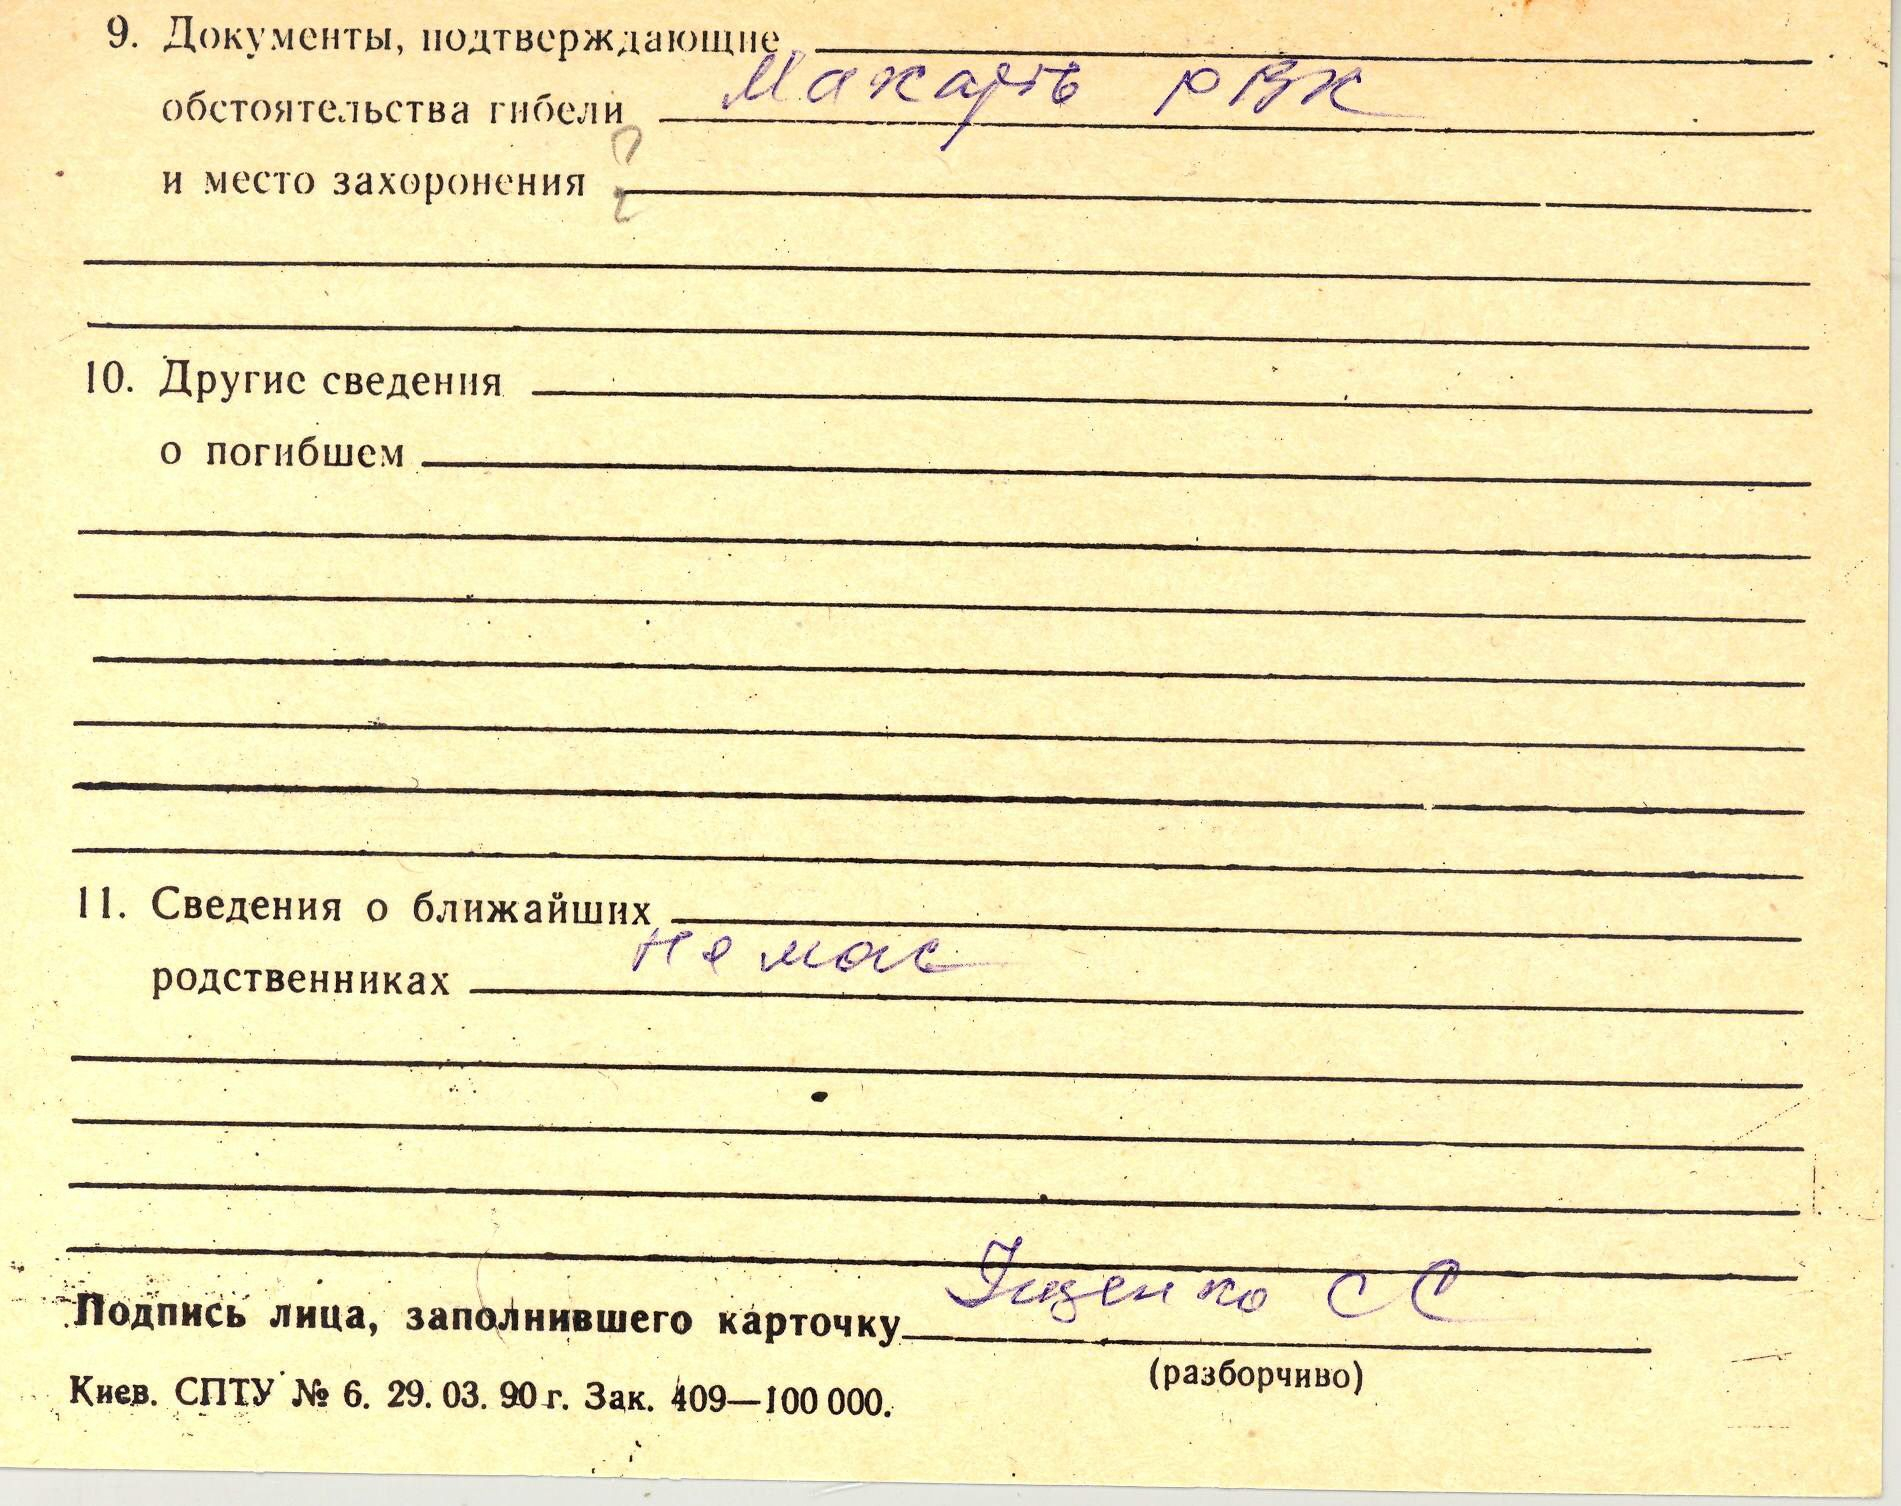 9. Документы, подтверждающие
Макарів РВК
обстоятельства гибели
и место захоронения ?
10. Другие сведения
о погибшем
11. Сведения о ближайших
немає
родственниках
Іщенко С С
Подпись лица, заполнившего карточку
(разборчиво)
Киев. СПТУ № 6. 29. 03. 90 г. Зак. 409—100 000.